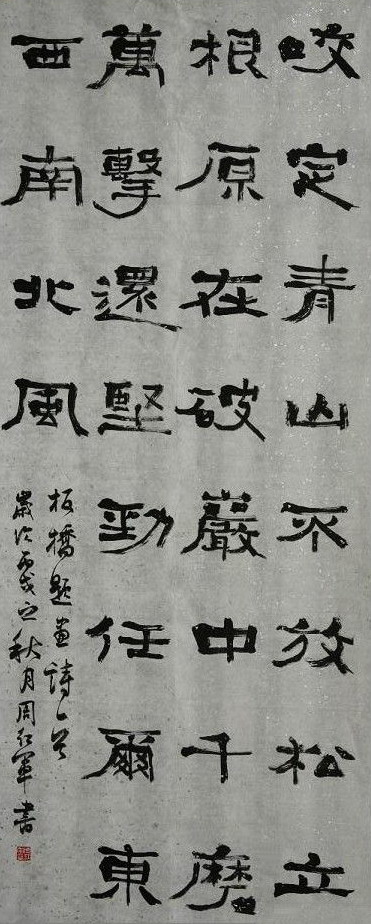 咬定青山不放松立
根原在破巖中千磨
萬擊還堅勁任爾東
西南北風
板橋題畫詩一首
歲次丙戌之秋月周軍書